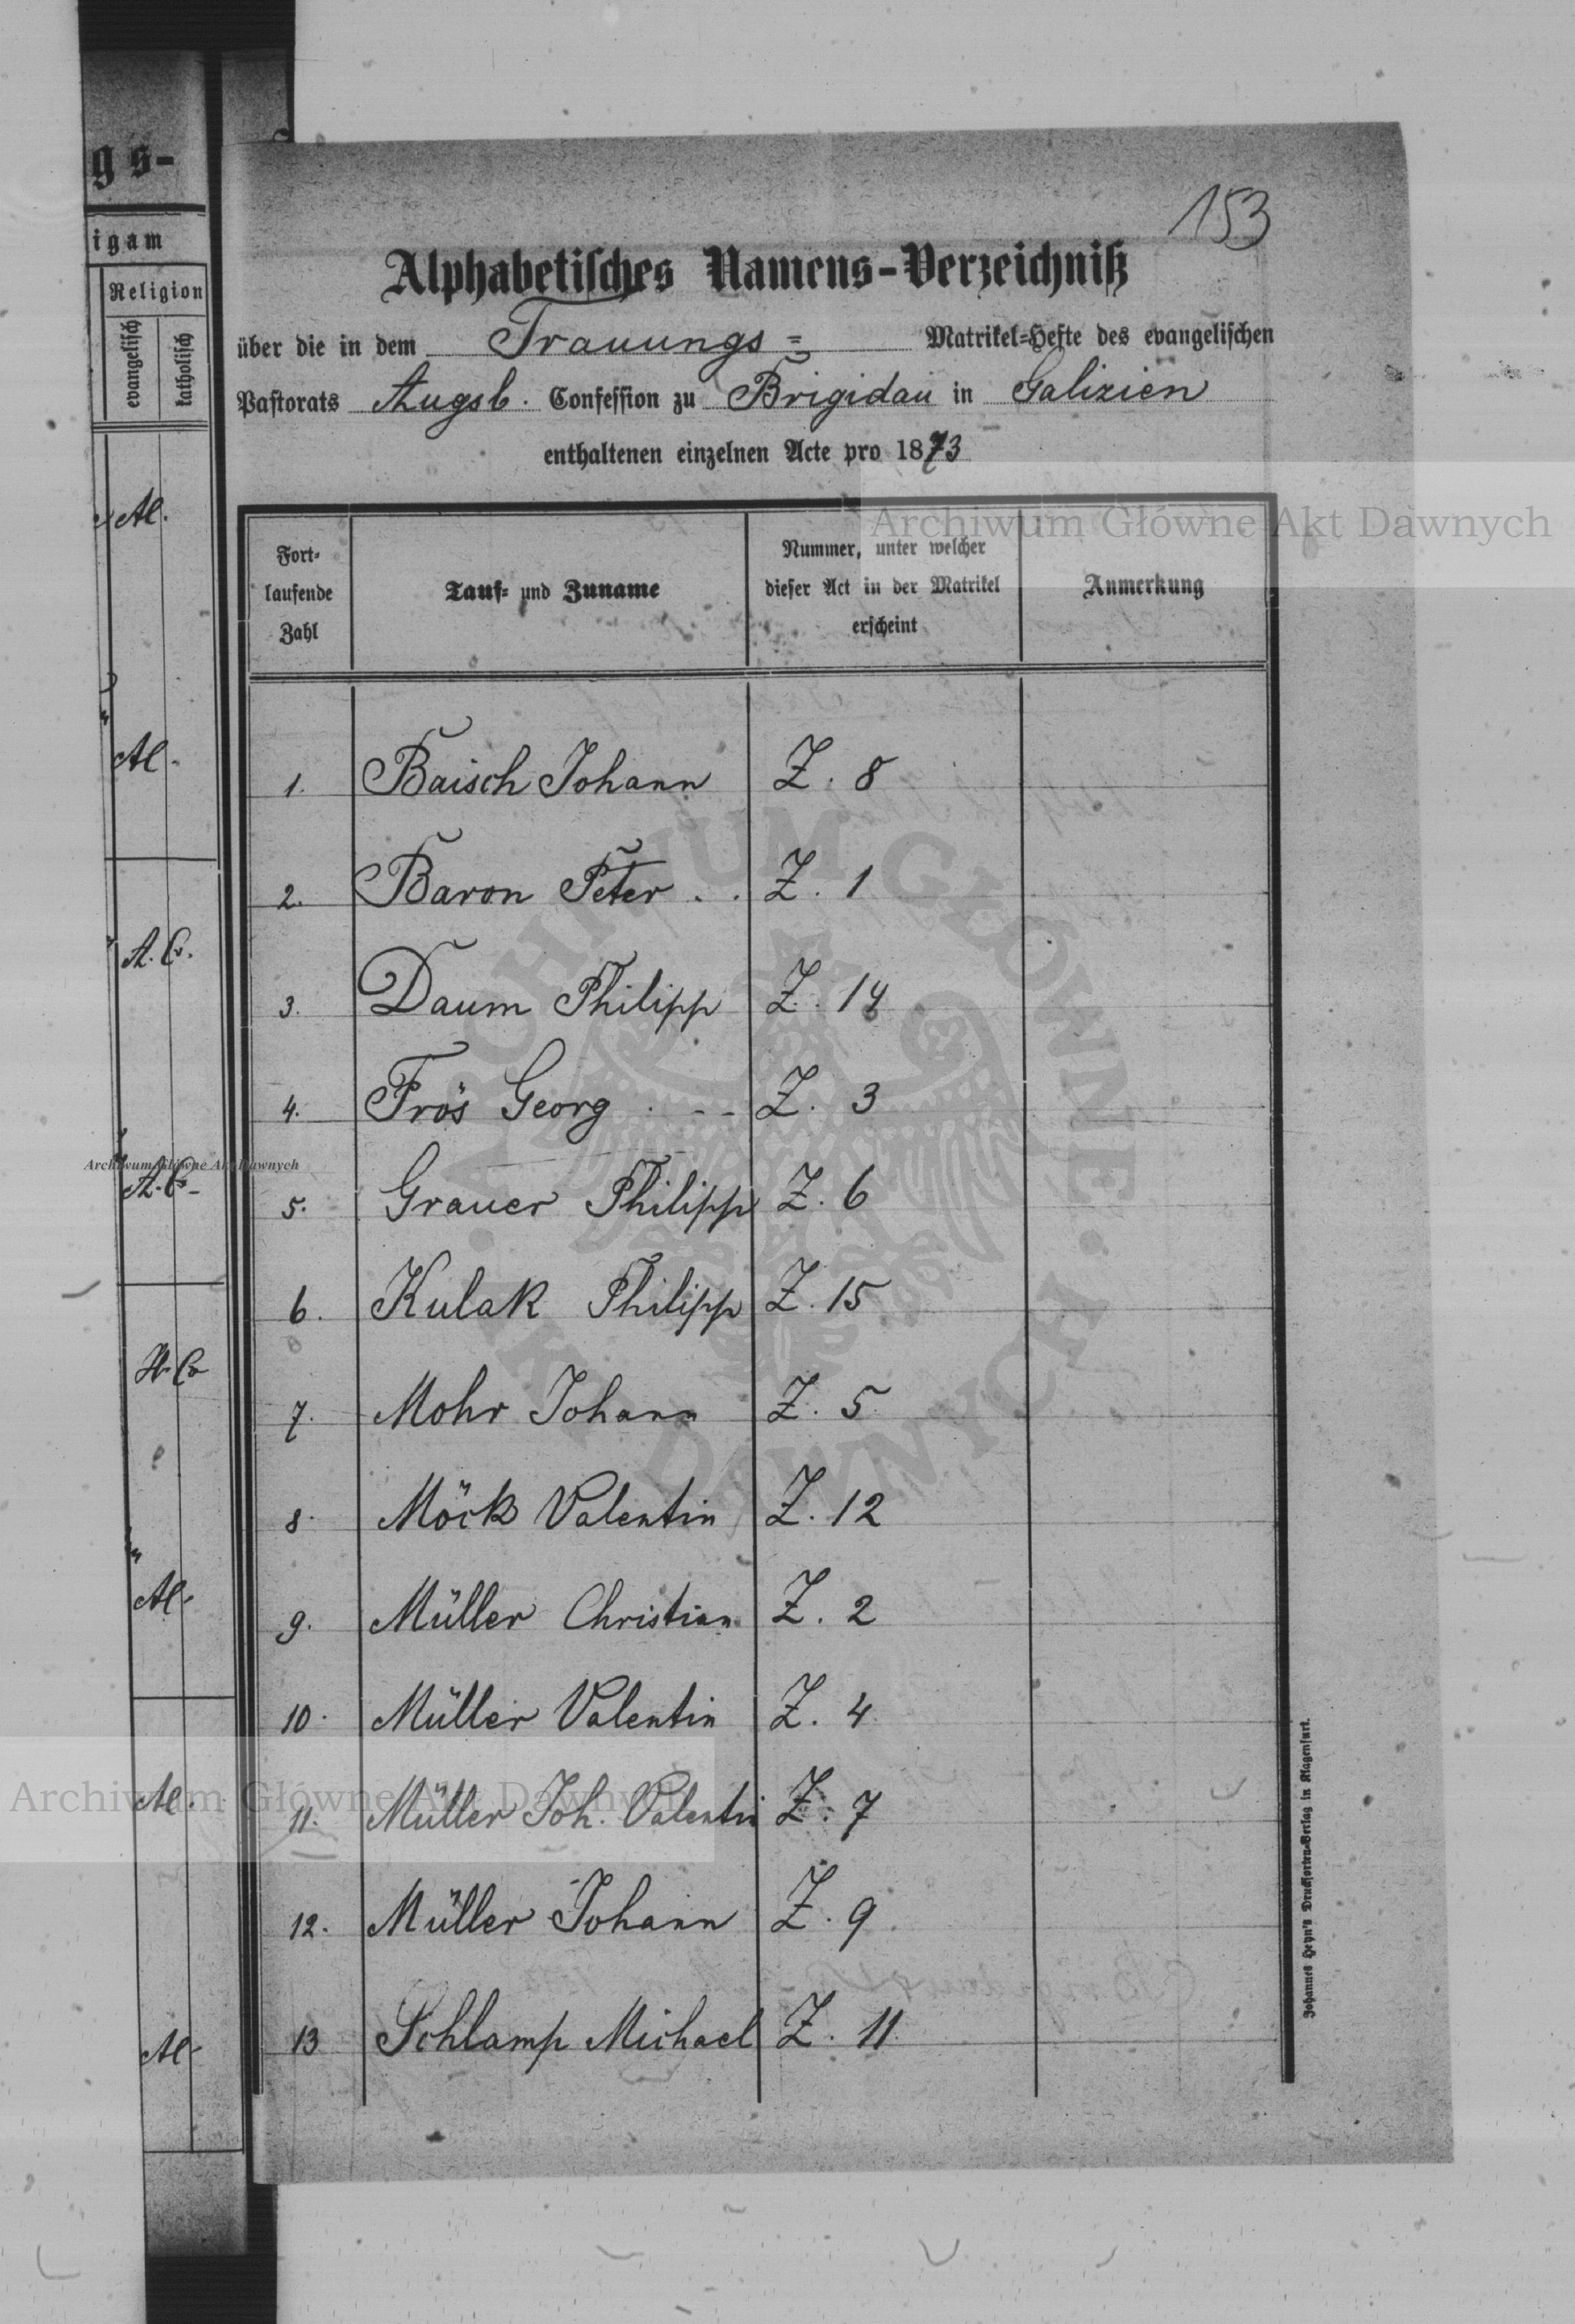 gs-
igam
Religion
evangelisch
katholisch
Al.
Al.
A. C.
A. C.
H. C.
Al.
Al.
Al.
153
Alphabetisches Namens-Verzeichniß
über die in dem Trauungs= Matrikel-Hefte des evangelischen
Pastorats Augsb. Confession zu Brigidau in Galizien
enthaltenen einzelnen Acte pro 1873
Fort-
laufende
Zahl
Tauf- und Zuname
Nummer, unter welcher
dieser Act in der Matrikel
erscheint
Anmerkung
1. Baisch Johann Z. 8
2. Baron Peter . . Z. 1
3. Daum Philipp Z. 14
4. Frös Georg . - - Z. 3
5. Grauer Philipp Z. 6
6. Kulak Philipp Z. 15
7. Mohr Johann Z. 5
8. Möck Valentin Z. 12
9. Müller Christian Z. 2
10. Müller Valentin Z. 4
11. Müller Joh. Valentin Z. 7
12. Müller Johann Z. 9
13 Schlamp Michael Z. 11
Johannes Heyn's Drucksorten-Verlag in Klagenfurt.
Archiwum Główne Akt Dawnych
Archiwum Główne Akt Dawnych
Archiwum Główne Akt Dawnych
ARCHIWUM GŁÓWNE AKT DAWNYCH